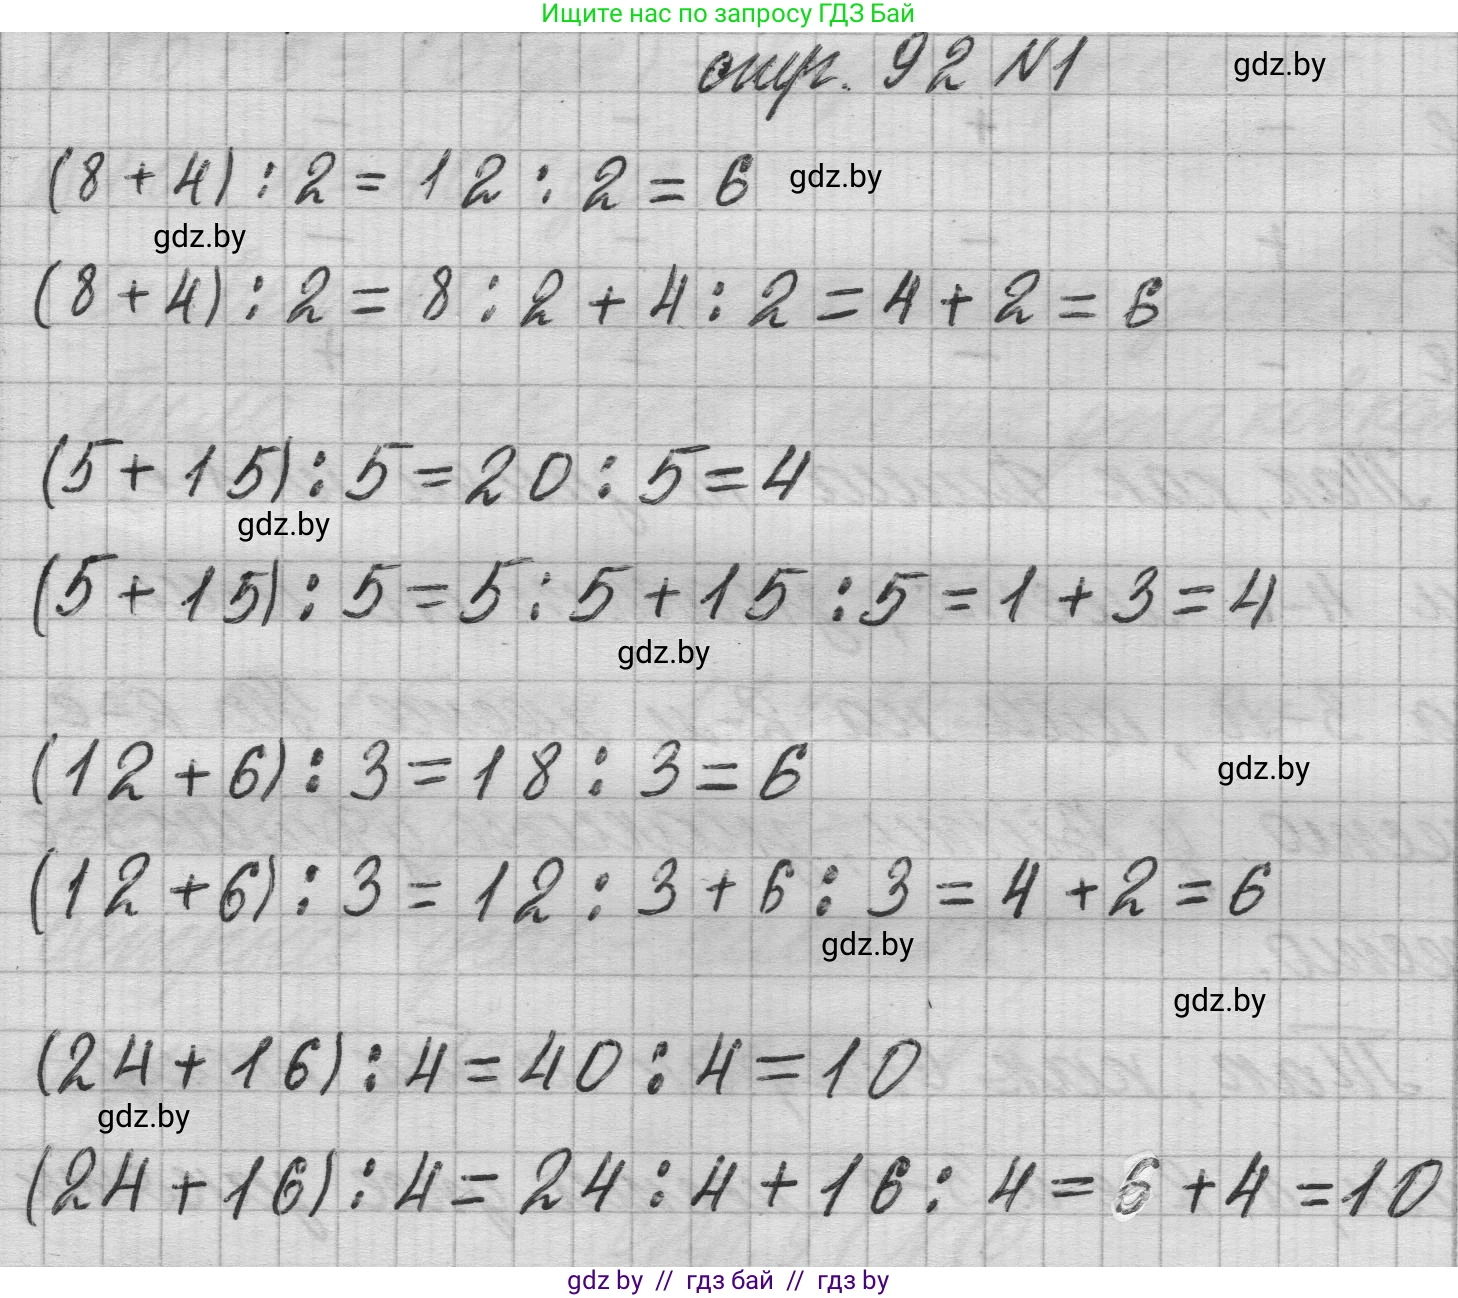 Ищите нас по запросу ГДЗ Бай
стр. 92 №1
gdz.by
(8 + 4) : 2 = 12 : 2 = 6
gdz.by
gdz.by
(8 + 4) : 2 = 8 : 2 + 4 : 2 = 4 + 2 = 6
(5 + 15) : 5 = 20 : 5 = 4
gdz.by
(5 + 15) : 5 = 5 : 5 + 15 : 5 = 1 + 3 = 4
gdz.by
(12 + 6) : 3 = 18 : 3 = 6
gdz.by
(12 + 6) : 3 = 12 : 3 + 6 : 3 = 4 + 2 = 6
gdz.by
gdz.by
(24 + 16) : 4 = 40 : 4 = 10
gdz.by
(24 + 16) : 4 = 24 : 4 + 16 : 4 = 6 + 4 = 10
gdz by // гдз бай // гдз by